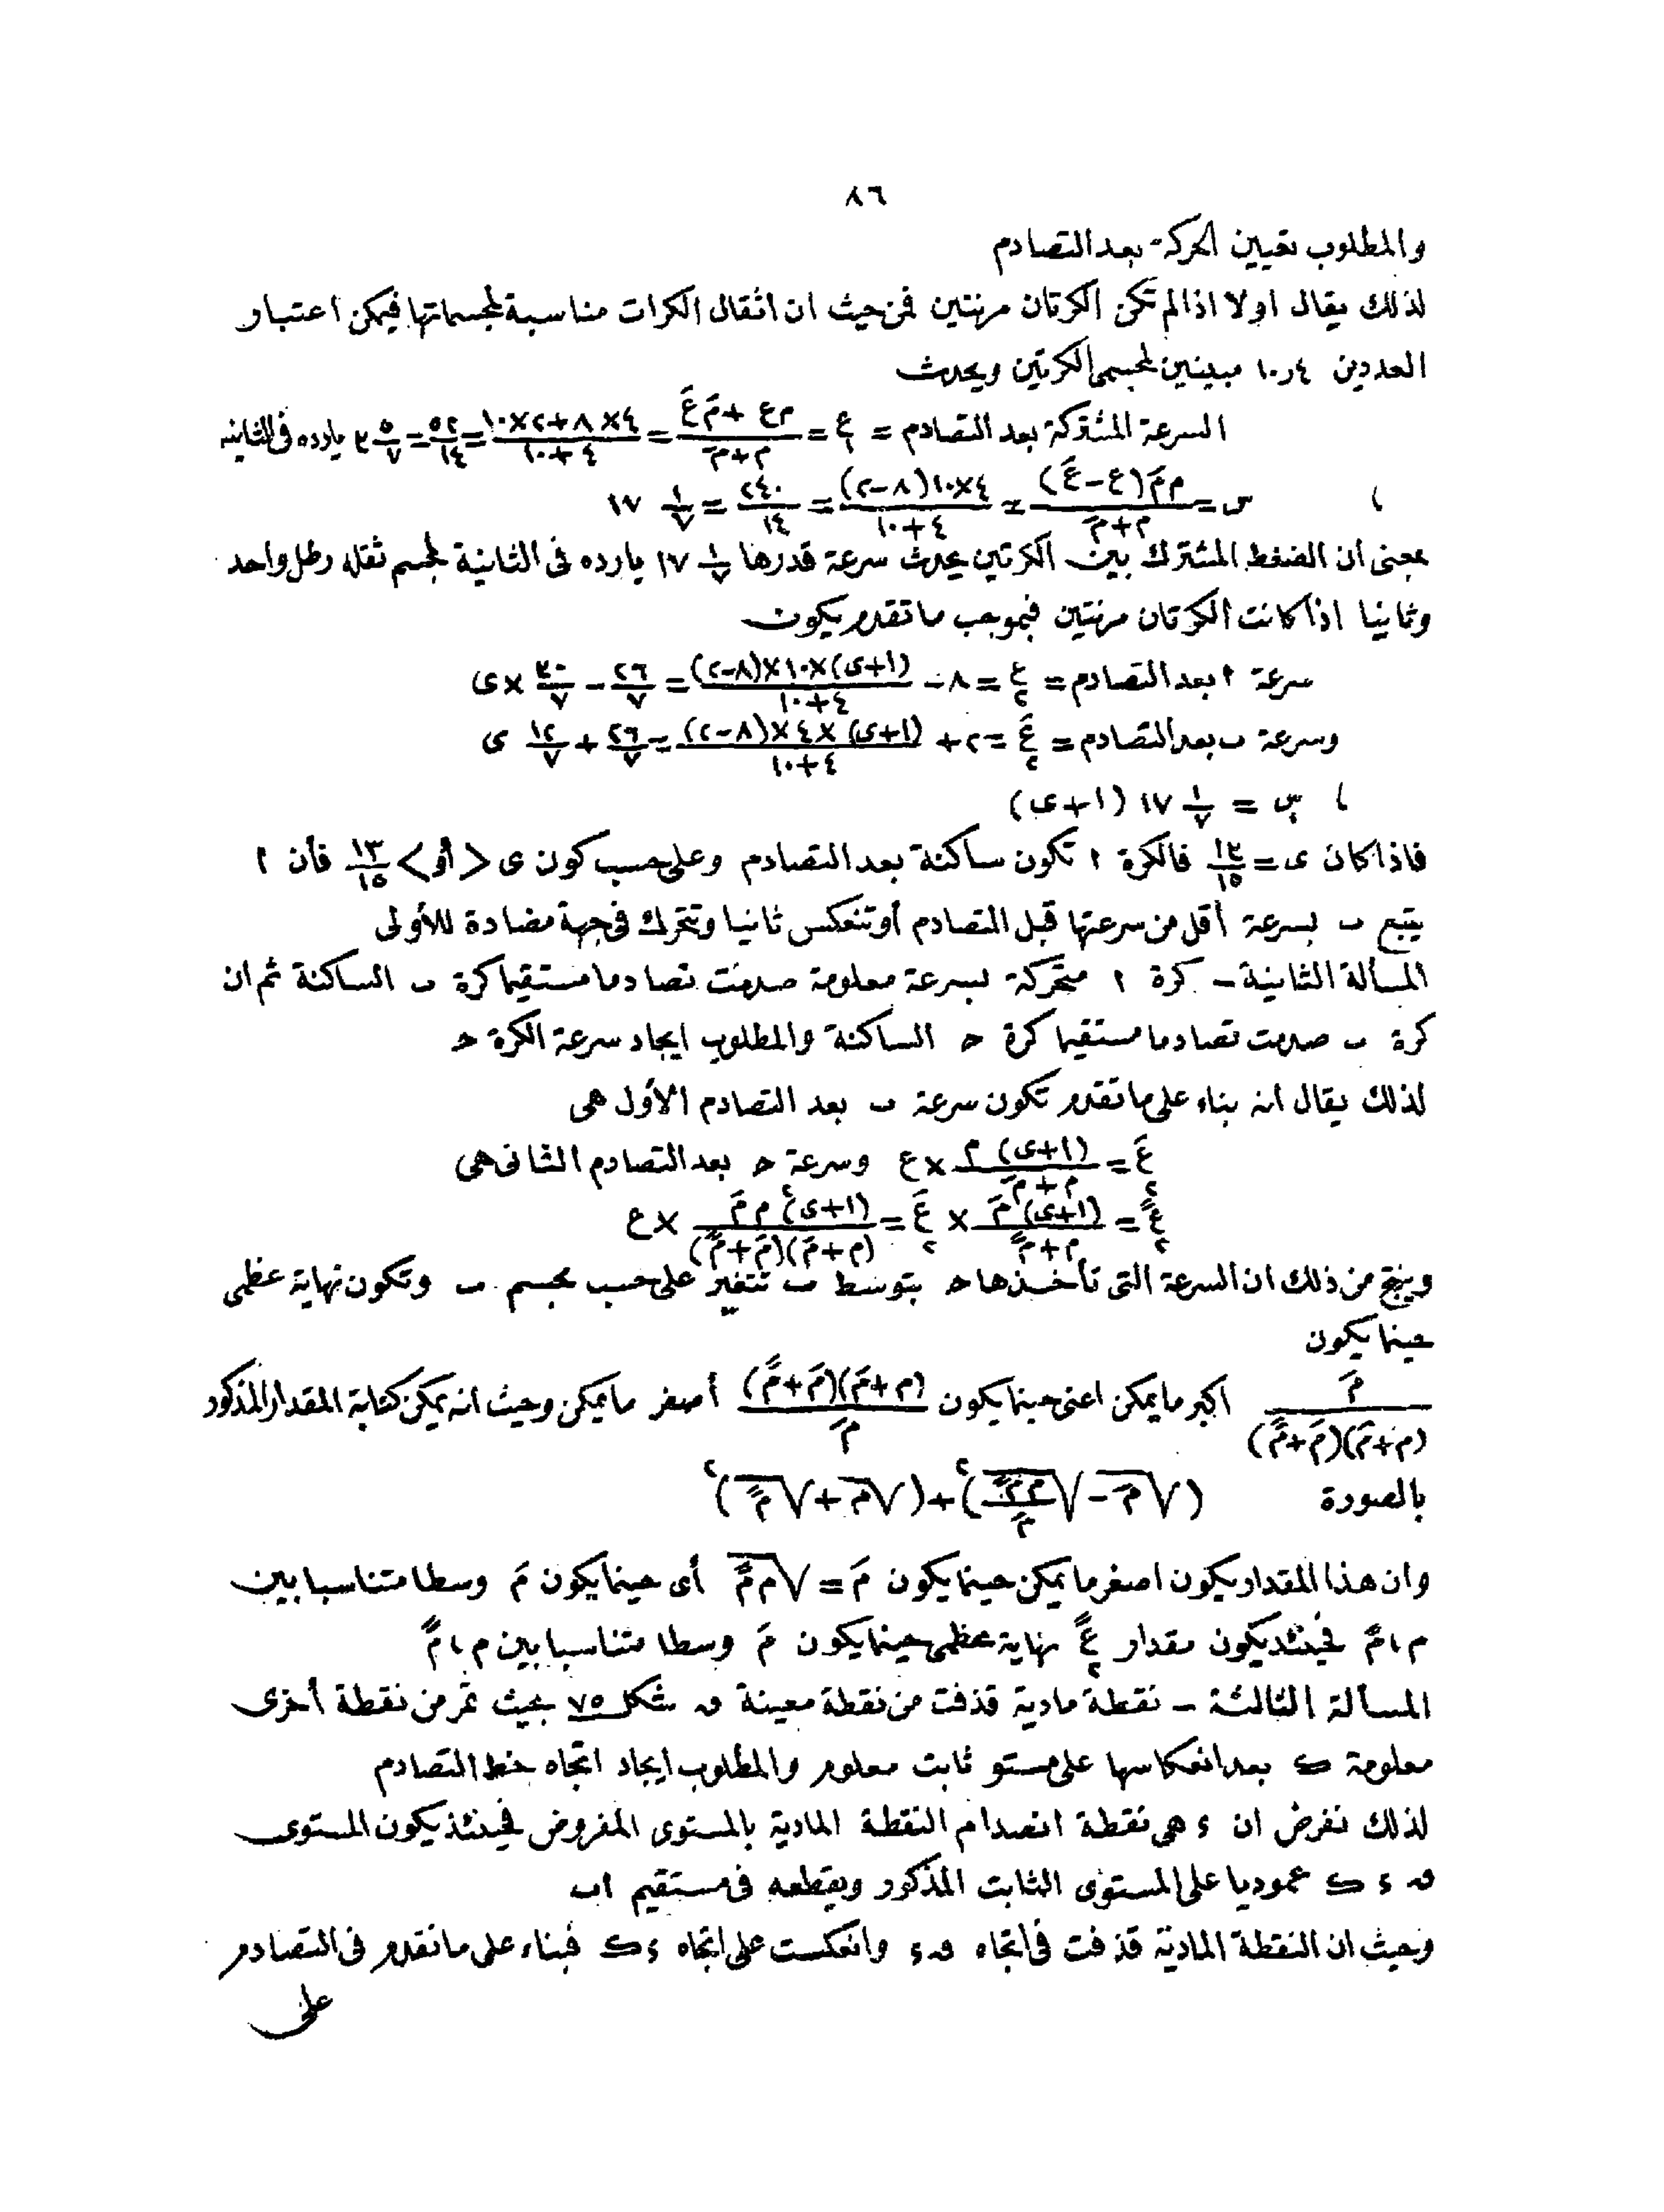 ٨٦
والمطلوب تعيين الحركة بعد التصادم
لذلك يقال اولا اذا لم تكن الكرتان مرنتين فمن حيث ان اثقال الكرات مناسبة لمجسماتها فيمكن اعتبار
العددين ٤ ر ١٠ مبينين لمجسمى الكرتين ويحدث
السرعة المشتركة بعد التصادم = ع١ = (م ع + مَ عَ)/(م + مَ) = (٤×٨+٢×١٠)/(٤+١٠) = ٥٢/١٤ = ٣ ٥/٧ يارده فى الثانية
، س = م مَ (ع − عَ)/(م + مَ) = ٤×١٠(٨−٢)/(٤+١٠) = ٢٤٠/١٤ = ١٧ ١/٧
بمعنى ان الضغط المشترك بين الكرتين يحدث سرعة قدرها ١٧ ١/٧ يارده فى الثانية لمجسم ثقله رطل واحد
وثانيا اذا كانت الكرتان مرنتين فبموجب ما تقدم يكون
سرعة ا بعد التصادم = ع٢ = ٨ − (١+ى)×١٠×(٨−٢)/(٤+١٠) = ٢٦/٧ − ٣٠/٧ × ى
وسرعة ب بعد التصادم = عَ٢ = ٢ + (١+ى)×٤×(٨−٢)/(٤+١٠) = ٢٦/٧ + ١٢/٧ ى
، س = ١٧ ١/٧ (١+ى)
فاذا كان ى = ١٣/١٥ فالكرة ا تكون ساكنة بعد التصادم وعلى حسب كون ى < أو > ١٣/١٥ فأن ا
يتبع ب بسرعة أقل من سرعتها قبل التصادم أو تنعكس ثانيا وتتحرك فى جهة مضادة للأولى
المسألة الثانية − كرة ا متحركة بسرعة معلومة صدمت تصادما مستقيما كرة ب الساكنة ثم ان
كرة ب صدمت تصادما مستقيما كرة ح الساكنة والمطلوب ايجاد سرعة الكرة ح
لذلك يقال انه بناء على ما تقدم تكون سرعة ب بعد التصادم الأول هى
عَ٢ = (١+ى) م/(م + مَ) × ع وسرعة ح بعد التصادم الثانى هى
عً٢ = (١+ى) مَ/(مَ + مً) × عَ٢ = (١+ى)٢ م مَ/(م + مَ)(مَ + مً) × ع
وينتج من ذلك ان السرعة التى تأخذها ح بتوسط ب تتغير على حسب مجسم ب وتكون نهاية عظمى
حينما يكون
مَ/(م + مَ)(مَ + مً) اكبر ما يمكن اعنى حينما يكون (م + مَ)(مَ + مً)/مَ أصغر ما يمكن وحيث انه يمكن كتابة المقدار المذكور
بالصورة (√مَ − √(م مً/مَ))٢ + (√م + √مً)٢
وان هذا المقدار يكون اصغر ما يمكن حينما يكون مَ = √م مً أى حينما يكون مَ وسطا متناسبا بين
م ، مً فحينئذ يكون مقدار عً٢ نهاية عظمى حينما يكون مَ وسطا متناسبا بين م ، مً
المسألة الثالثة − نقطة مادية قذفت من نقطة معينة ق شكل ٧٥ بحيث تمر من نقطة أخرى
معلومة ك بعد انعكاسها على مستو ثابت معلوم والمطلوب ايجاد اتجاه خط التصادم
لذلك نفرض ان ء هى نقطة انصدام النقطة المادية بالمستوى المفروض فحينئذ يكون المستوى
ق ء ك عموديا على المستوى الثابت المذكور ويقطعه فى مستقيم اب
وحيث ان النقطة المادية قذفت فى اتجاه ق ء وانعكست على اتجاه ء ك فبناء على ما تقدم فى التصادم
على